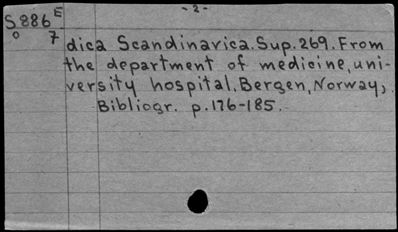 -2-
S886 E
o 7
dica Scandinavica. Sup. 269. From
the department of medicine, uni-
versity hospital. Bergen, Norway,
Bibliogr. p.176-185.